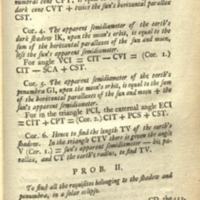 dark cone CVT + twice the sun's horizontal parallax
CST.
Cor. 4. The apparent semidiameter of the earth's
dark shadow IK, upon the moon's orbit, is equal to the
sum of the horizontal parallaxes of the sun and moon,
the sun's apparent semidiameter.
For angle VCI = CIT — CVI = (Cor. 1.)
CIT — SCA + CST.
Cor. 5. The apparent semidiameter of the earth's
penumbra GI, upon the moon's orbit, is equal to the sum
of the horizontal parallaxes of the sun and moon + the
sun's apparent semidiameter.
For in the triangle PCI, the external angle ECI
= CIT + CPT = (Cor. 2.) CIT + PCS + CST.
Cor. 6. Hence to find the length TV of the earth's
shadow. In the triangle CTV there is given the angle
V (Cor. 1.) = sun's apparent semidiameter — his pa-
rallax, and CT the earth's radius, to find TV.
PROB. II.
To find all the requisites belonging to the shadow and
penumbra, in a solar eclipse.